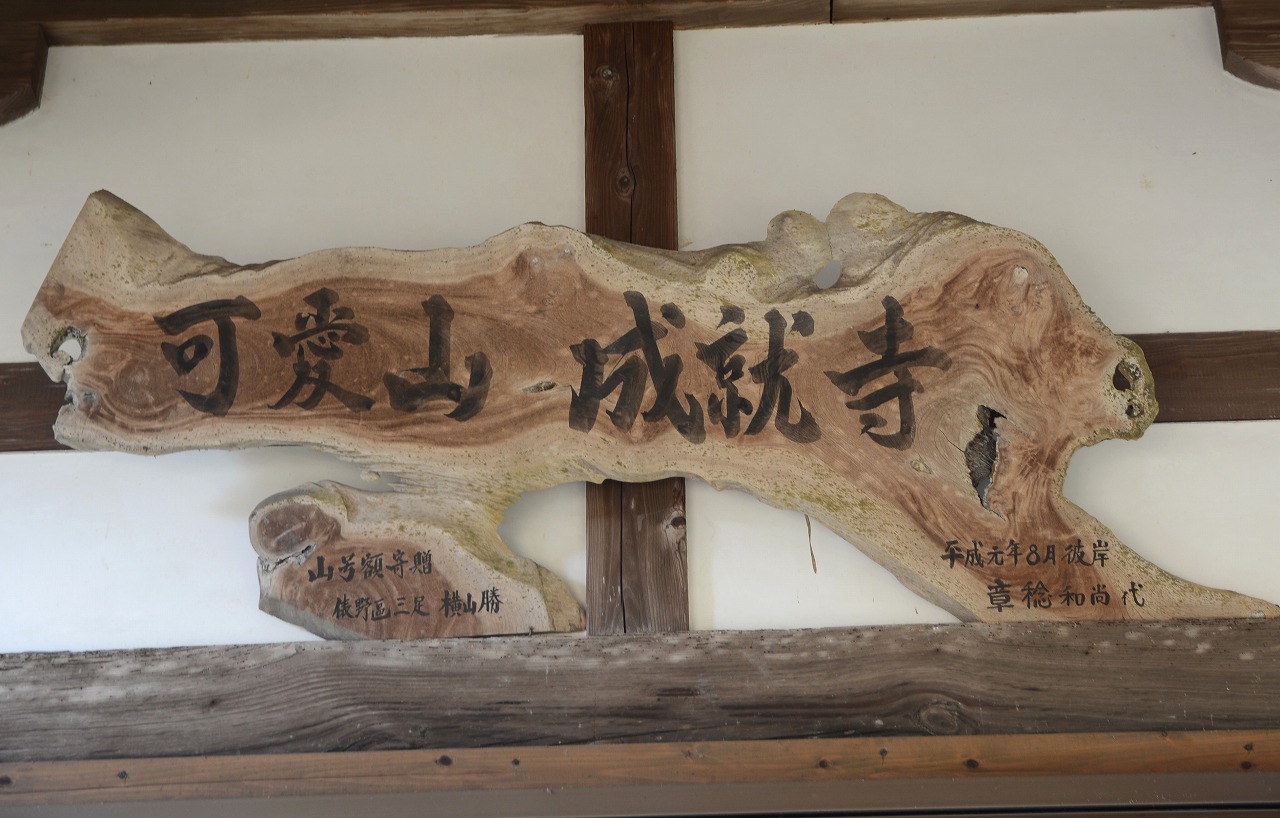 可愛山 成就寺
山号額寄贈
俵野区三足 横山勝
平成元年8月彼岸
章稔和尚代